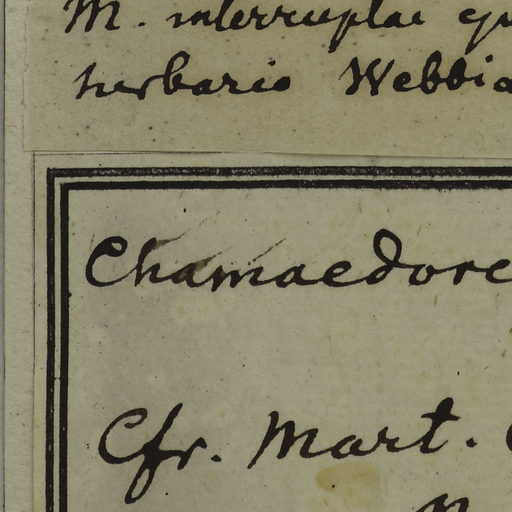 M. interruptae
herbario Webbia
Chamaedore
Cfr. Mart.